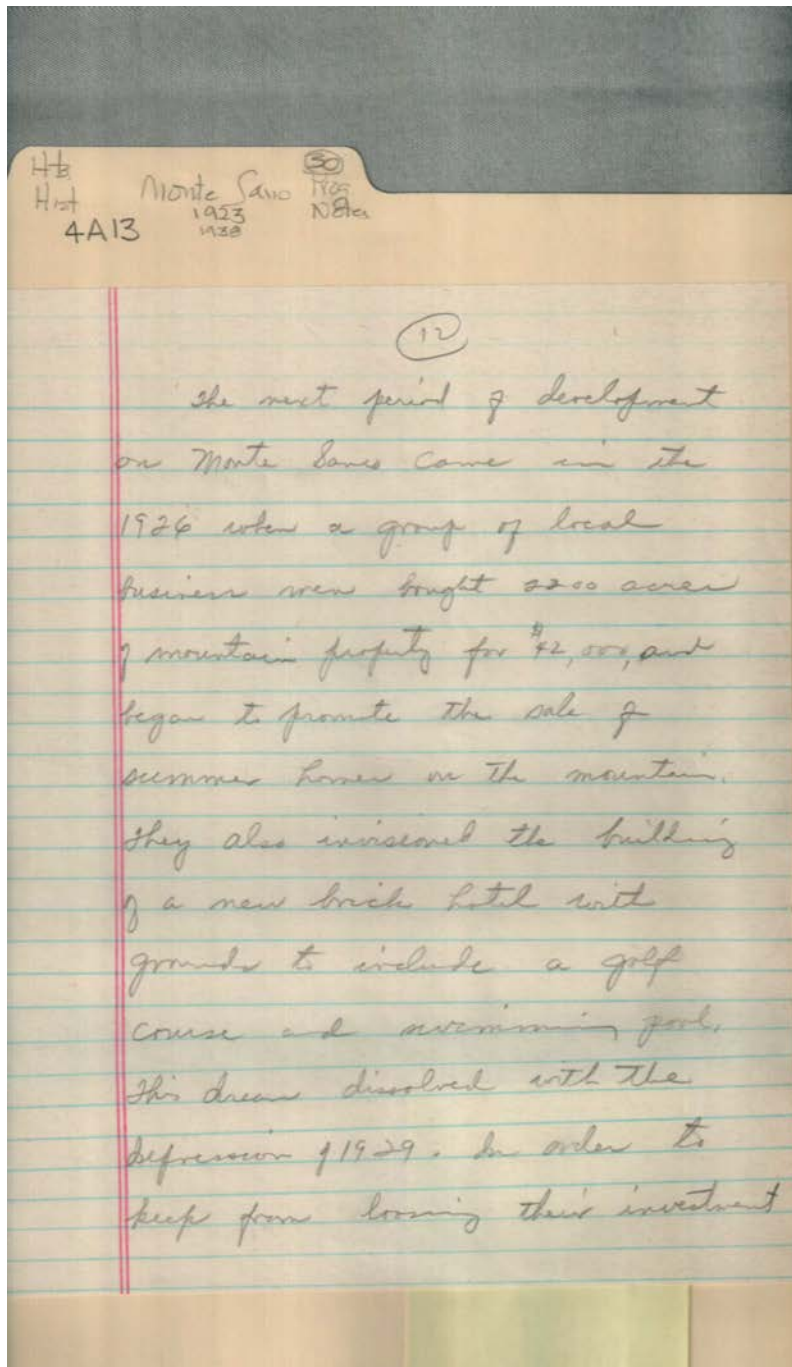 Hist
Monte Sano
30
Notes
4A13
1923
1938
12
The next period of development
on Monte Sano came in the
1926 when a group of local
business men bought 2200 acres
of mountain property for $42,000, and
began to promote the sale of
summer homes on the mountain.
They also invisioned the building
of a new brick hotel with
grounds to include a golf
course and swimming pool.
This dream dissolved with the
depression of 1929. In order to
keep from loosing their investment